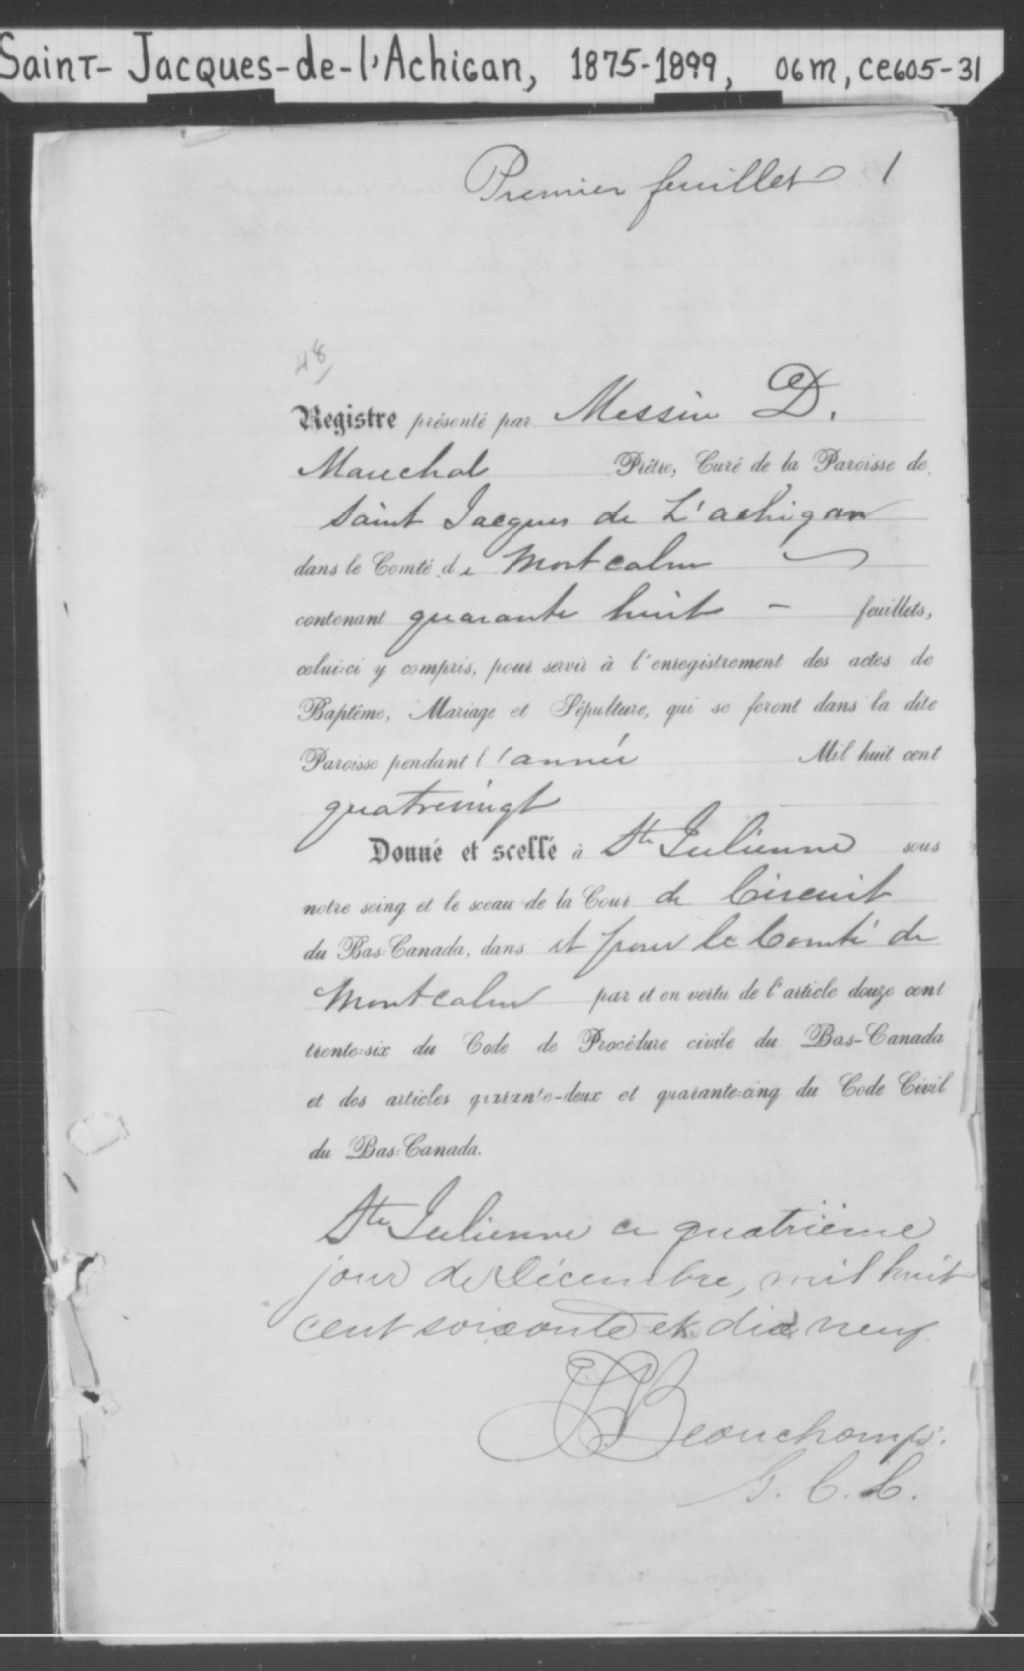 Saint-Jacques-de-l'Achigan, 1875-1899, 06M, CE605-31
Premier feuillet 1
48
Registre présenté par Messire D.
Marechal Prêtre, Curé de la Paroisse de
Saint Jacques de L'achigan
dans le Comté de Montcalm
contenant quarante huit - feuillets,
celui-ci y compris, pour servir à l'enregistrement des actes de
Baptême, Mariage et Sépulture, qui se feront dans la dite
Paroisse pendant l'année Mil huit cent
quatrevingt
Donné et scellé à Ste Julienne sous
notre seing et le sceau de la Cour de Circuit
du Bas-Canada, dans et pour le Comté de
Montcalm par et en vertu de l'article douze cent
trente-six du Code de Procédure civile du Bas-Canada
et des articles quarante-deux et quarante-cinq du Code Civil
du Bas-Canada.
Ste Julienne ce quatrième
jour de Décembre, mil huit
cent soixante et dix neuf.
Beauchamp.
G. C. C.